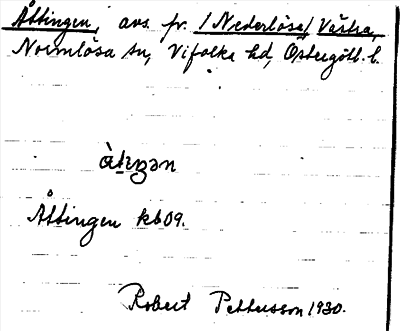 Åttingen, avs. fr. /Nederlösa/ Västra,
Normlösa sn, Vifolka hd, Östergötl. l.
àtıŋən
Åttingen kb09.
Robert Pettersson 1930.